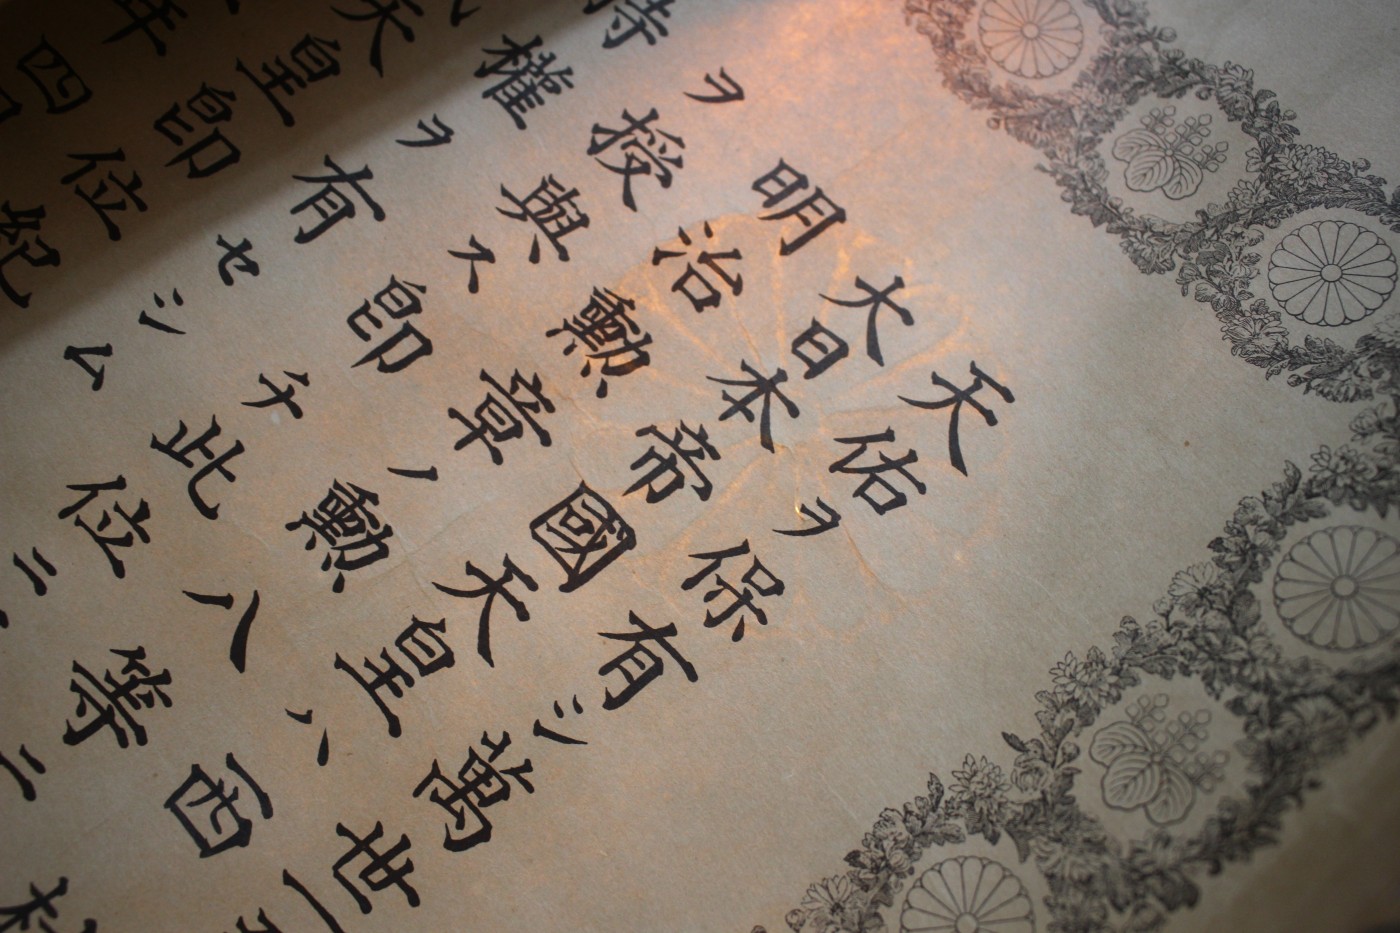 天佑ヲ保有シ萬世一
大日本帝國天皇ハ西
明治勲章ノ勲八等ニ
ヲ授與ス即チ此位ニ
特權ヲ有セシム
天皇即位紀
年四